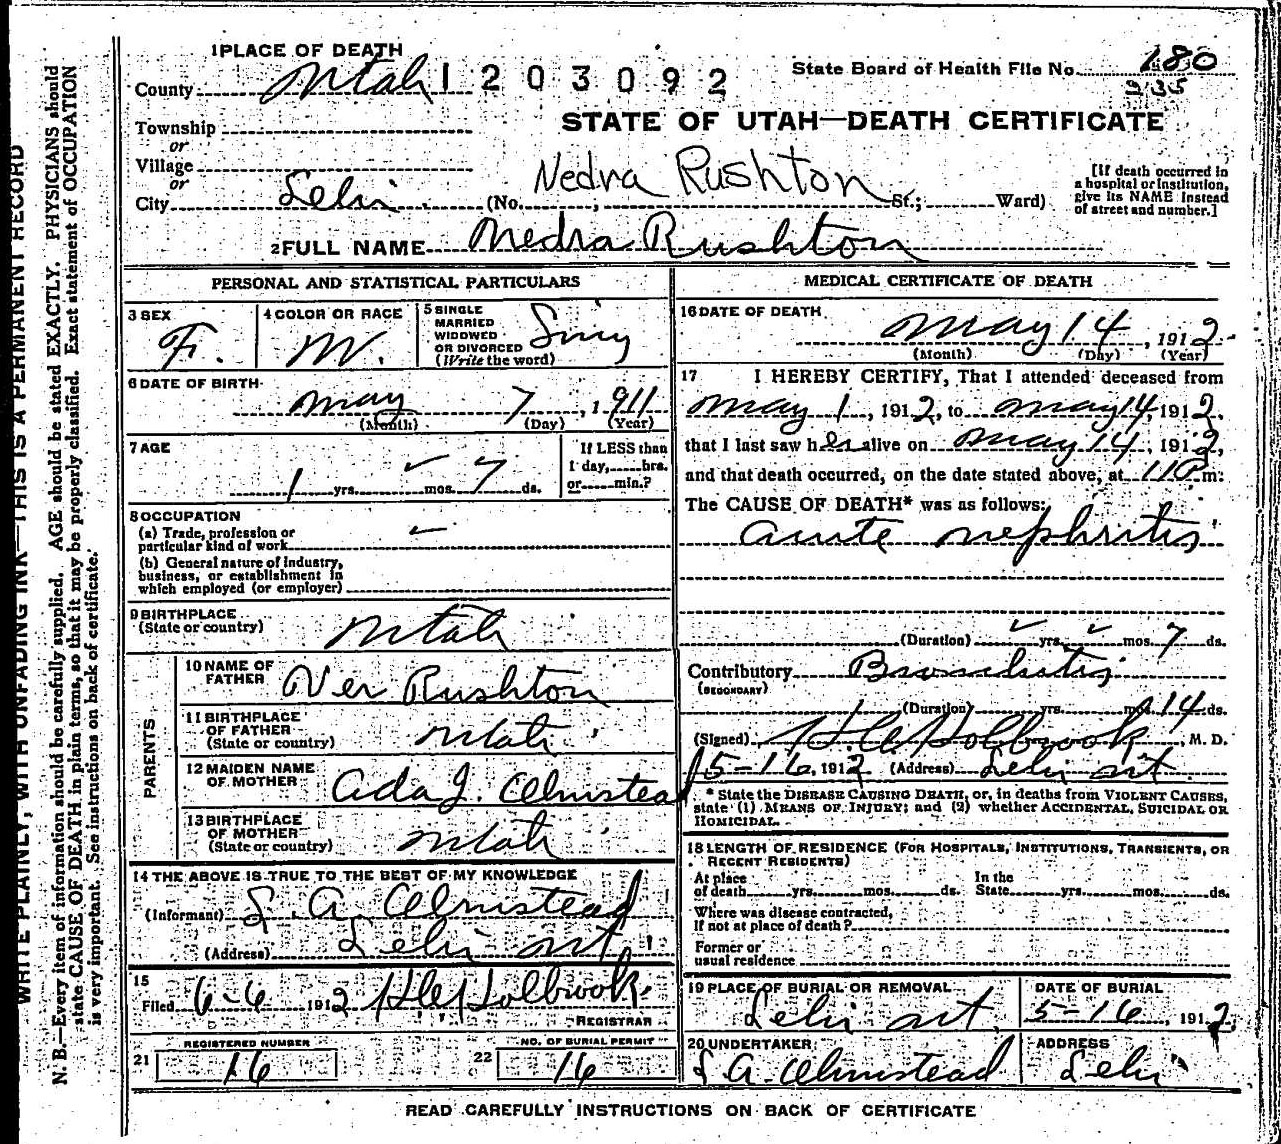 1 PLACE OF DEATH
County Utah 1203092 State Board of Health File No. 180
235
Township
or
STATE OF UTAH—DEATH CERTIFICATE
Village
or
City Lehi (No. , Nedra Rushton St.; Ward)
[If death occurred in
a hospital or institution,
give its NAME instead
of street and number.]
2 FULL NAME Nedra Rushton
PERSONAL AND STATISTICAL PARTICULARS
3 SEX
F.
4 COLOR OR RACE
W.
5 SINGLE
MARRIED
WIDOWED
OR DIVORCED
(Write the word)
Sing
6 DATE OF BIRTH
May 7, 1911
(Month) (Day) (Year)
7 AGE
1 yrs. mos. 7 ds.
If LESS than
1 day, hrs.
or min.?
8 OCCUPATION
(a) Trade, profession or
particular kind of work
(b) General nature of industry,
business, or establishment in
which employed (or employer)
9 BIRTHPLACE
(State or country) Utah
PARENTS
10 NAME OF
FATHER Ver Rushton
11 BIRTHPLACE
OF FATHER
(State or country) Utah
12 MAIDEN NAME
OF MOTHER Ada J. Olmstead
13 BIRTHPLACE
OF MOTHER
(State or country) Utah
14 THE ABOVE IS TRUE TO THE BEST OF MY KNOWLEDGE
(Informant) S. A. Olmstead
(Address) Lehi Ut.
15
Filed 6-6 1912 H C Holbrook
REGISTRAR
REGISTERED NUMBER
21 16
NO. OF BURIAL PERMIT
22 16
MEDICAL CERTIFICATE OF DEATH
16 DATE OF DEATH
May 14, 1912
(Month) (Day) (Year)
17 I HEREBY CERTIFY, That I attended deceased from
May 1, 1912, to May 14, 1912,
that I last saw her alive on May 14, 1912,
and that death occurred, on the date stated above, at 11 P m.
The CAUSE OF DEATH* was as follows:
acute nephritis
(Duration) yrs. mos. 7 ds.
Contributory Bronchitis
(SECONDARY)
(Duration) yrs. mos. 14 ds.
(Signed) H C Holbrook, M. D.
5-16, 1912 (Address) Lehi Ut.
* State the DISEASE CAUSING DEATH, or, in deaths from VIOLENT CAUSES,
state (1) MEANS OF INJURY; and (2) whether ACCIDENTAL, SUICIDAL OR
HOMICIDAL.
18 LENGTH OF RESIDENCE (FOR HOSPITALS, INSTITUTIONS, TRANSIENTS, OR
RECENT RESIDENTS)
At place
of death yrs. mos. ds.
In the
State yrs. mos. ds.
Where was disease contracted,
If not at place of death?
Former or
usual residence
19 PLACE OF BURIAL OR REMOVAL
Lehi Ut.
DATE OF BURIAL
5-16, 1912
20 UNDERTAKER
S A Olmstead
ADDRESS
Lehi
READ CAREFULLY INSTRUCTIONS ON BACK OF CERTIFICATE
WRITE PLAINLY, WITH UNFADING INK—THIS IS A PERMANENT RECORD
N. B.—Every item of information should be carefully supplied. AGE should be stated EXACTLY. PHYSICIANS should
state CAUSE OF DEATH in plain terms, so that it may be properly classified. Exact statement of OCCUPATION
is very important. See instructions on back of certificate.